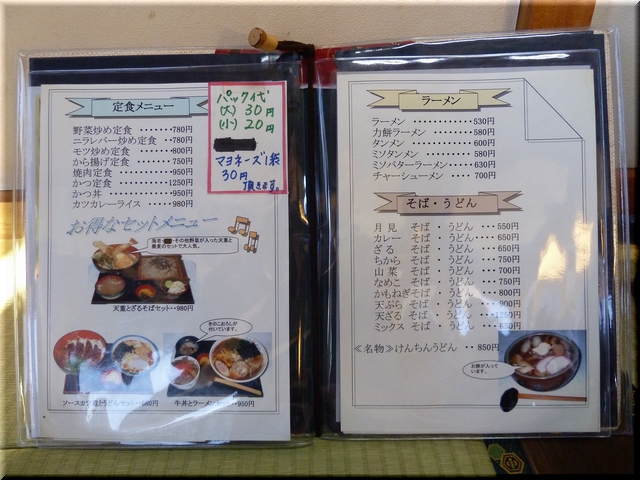 定食メニュー
野菜炒め定食 ・・・・・・・780円
ニラレバー炒め定食 ・・780円
モツ炒め定食 ・・・・・・・800円
から揚げ定食 ・・・・・・・750円
焼肉定食 ・・・・・・・・・950円
かつ定食 ・・・・・・・・・1250円
かつ丼 ・・・・・・・・・・950円
カツカレーライス ・・・・・980円
パック代
(大) 30円
(小) 20円
マヨネーズ1袋
30円
頂きます。
お得なセットメニュー
・その他野菜が入った天重と
蕎麦のセットで大人気。
天重とざるそばセット・・980円
きのこおろしが
付いています。
ソースカツ
うどんセット
牛丼とラーメン
950円
ラーメン
ラーメン ・・・・・・・・・530円
力餅ラーメン ・・・・・・・580円
タンメン ・・・・・・・・・600円
ミソタンメン ・・・・・・・580円
ミソバターラーメン ・・・・630円
チャーシューメン ・・・・・700円
そば・うどん
月見 そば・うどん ・・・550円
カレー そば・うどん ・・・650円
ざる そば・うどん ・・・650円
ちから そば・うどん ・・・750円
山菜 そば・うどん ・・・700円
なめこ そば・うどん ・・・750円
かもねぎそば・うどん ・・・800円
天ぷら そば・うどん ・・・900円
天ざる そば・うどん ・・・1250円
ミックス そば・うどん ・・・650円
≪名物≫けんちんうどん ・・850円
お餅が入って
います。